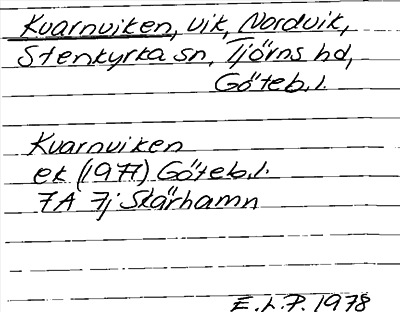 Kvarnviken, vik, Nordvik,
Stenkyrka sn, Tjörns hd,
Göteb. l.
Kvarnviken
ek (1977) Göteb. l.
7A 7j Skärhamn
E.L.P. 1978